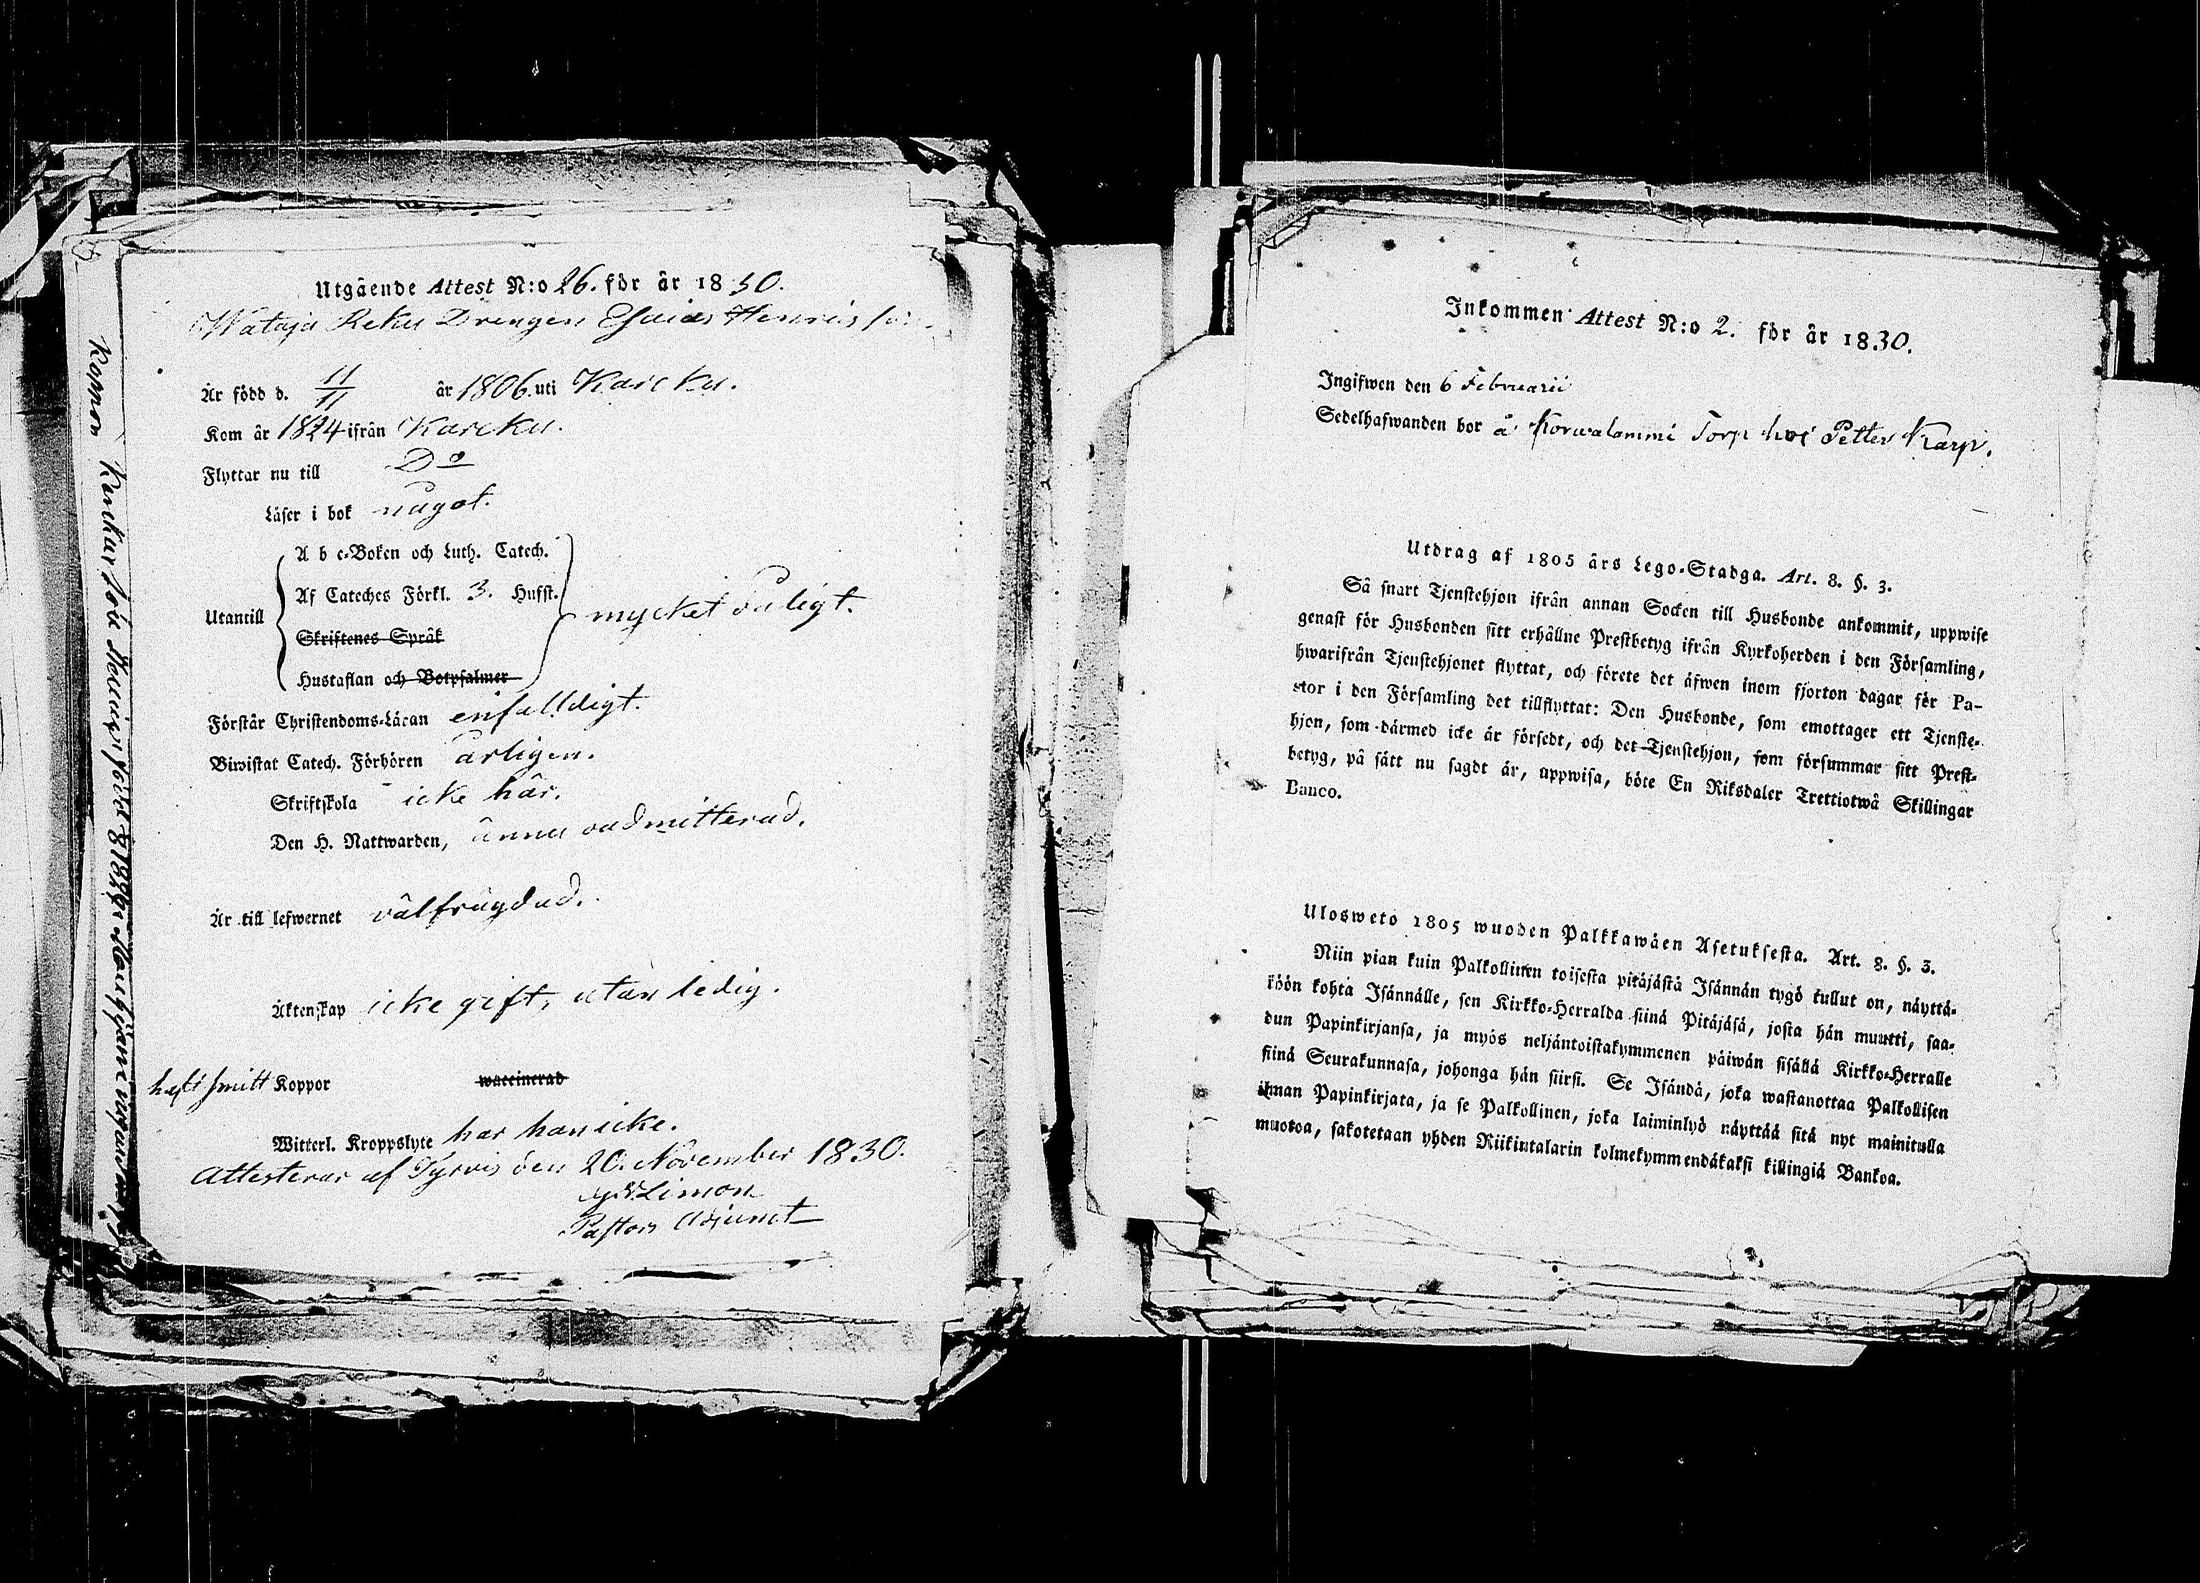 Utgående Attest N:o 26. för år 1830.
Wataja Reku Drengen Esaias Henriksson
Är född d. 11/11 år 1806. uti Karcku.
Kom år 1824 ifrån Karcku.
Flyttar nu till Do
Läser i bok något.
A b c-Boken och Luth. Catech.
Af Cateches Förkl. 3. Hufst.
Utantill mycket dåligt.
Skriftenes Språk
Hustaflan och Botpsalmer
Förstår Christendoms-Läran enfalldigt.
Biwistat Catech. Förhören årligen.
Skriftskola icke här.
Den H. Nattwarden, ännu oadmitterad.
Är till lefwernet välfrägdad.
Äktenskap icke gift, utan ledig.
haft smitt Koppor waccinerad
Witterl. Kroppslyte har han icke.
Attesterar af Tyrvis den 20. November 1830.
Limon
Pastors Adjunct
Koppon
Inkommen Attest N:o 2. för år 1830.
Ingifwen den 6 Februarii
Sedelhafwanden bor å Korwalammi Torp hos Petter Karp.
Utdrag af 1805 års Lego-Stadga. Art. 8. §. 3.
Så snart Tjenstehjon ifrån annan Socken till Husbonde ankommit, uppwise
genast för Husbonden sitt erhållne Prestbetyg ifrån Kyrkoherden i den Församling,
hwarifrån Tjenstehjonet flyttat, och förete det äfwen inom fjorton dagar för Pa-
stor i den Församling det tillflyttat: Den Husbonde, som emottager ett Tjenste-
hjon, som därmed icke är försedt, och det Tjenstehjon, som försummar sitt Prest-
betyg, på sätt nu sagdt är, uppwisa, böte En Riksdaler Trettiotwå Skillingar
Banco.
Ulosweto 1805 wuoden Palkkawäen Asetuksesta. Art. 8. §. 3.
Niin pian kuin Palkollinen toisesta pitäjästä Isännän tygö tullut on, näyttä-
köön kohta Isännälle, sen Kirkko-Herralda siinä Pitäjäsä, josta hän muutti, saa-
dun Papinkirjansa, ja myös neljäntoistakymmenen päiwän sisällä Kirkko-Herralle
siinä Seurakunnasa, johonga hän siirsi. Se Isändä, joka wastanottaa Palkollisen
ilman Papinkirjata, ja se Palkollinen, joka laiminlyö näyttää sitä nyt mainitulla
muotoa, sakotetaan yhden Riikintalarin kolmekymmendäkaksi killingiä Bankoa.